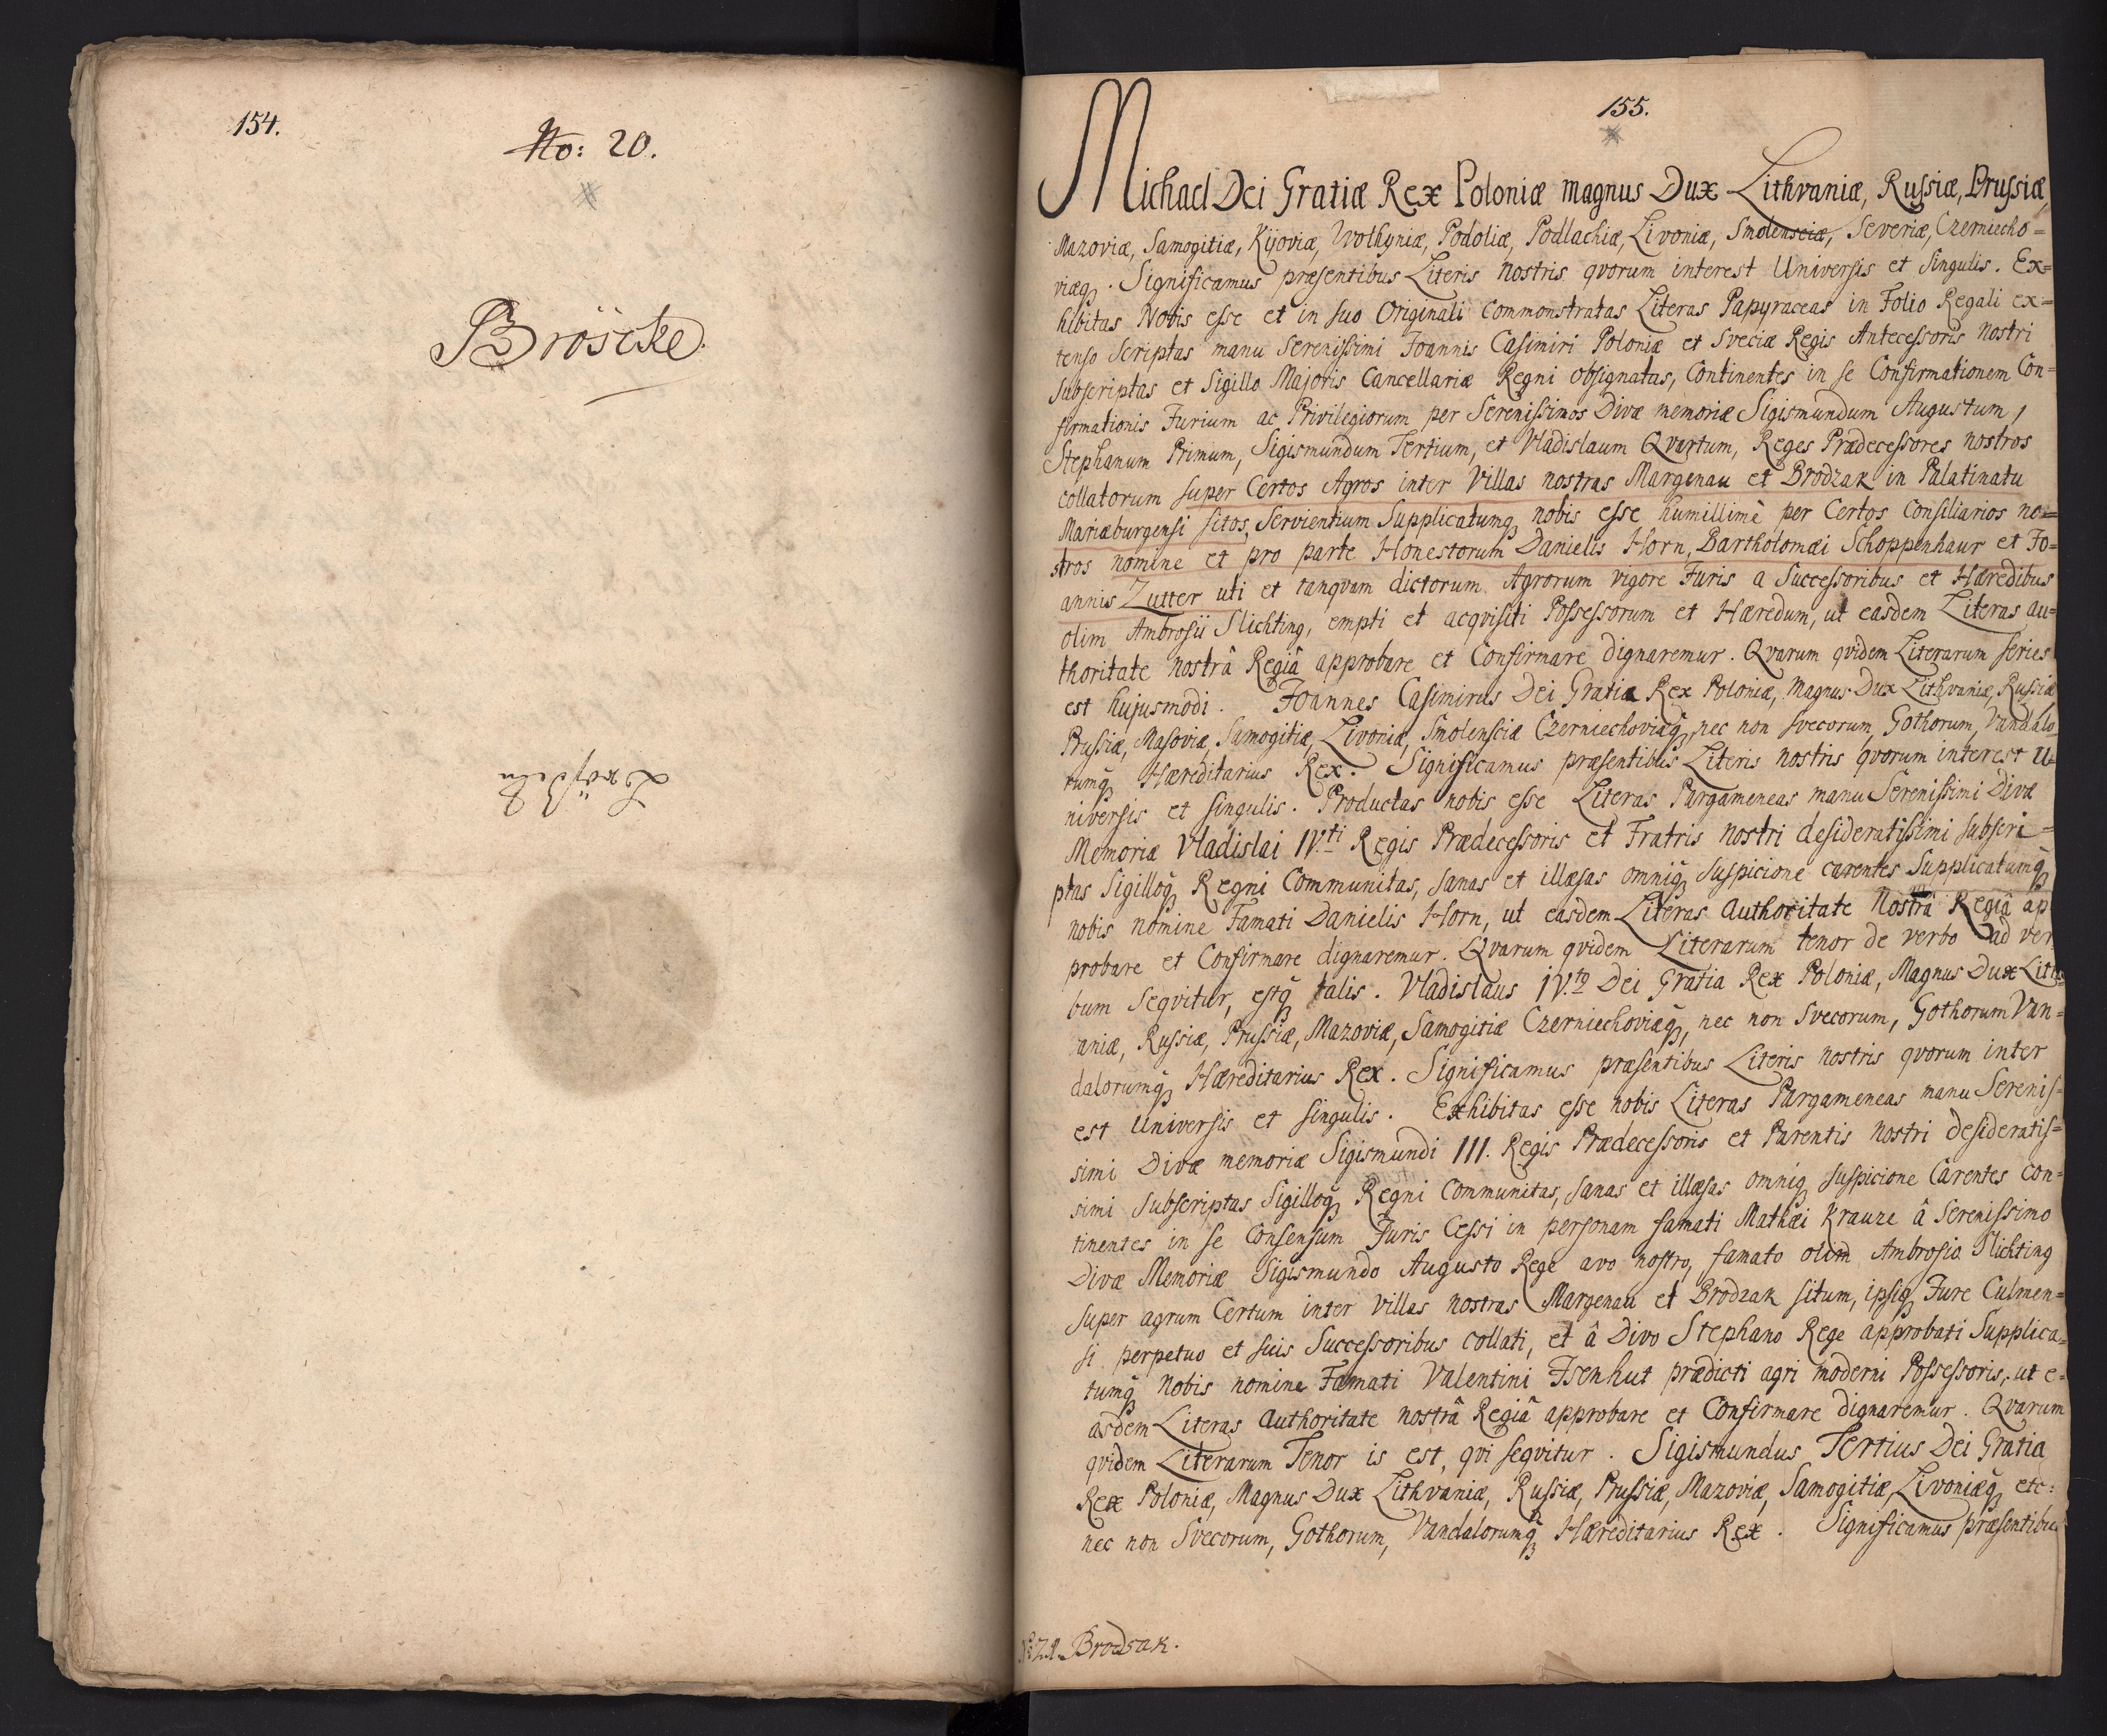 154.
No: 20.
Bröscke.
155.
Michael Dei Gratiæ Rex Poloniæ magnus Dux Lithvaniæ, Russiæ, Prussiæ,
Mazoviæ, Samogitiæ, Kijoviæ, Wolhyniæ, Podoliæ, Podlachiæ, Livoniæ, Smolensciæ, Severiæ, Czerniecho=
viæq. Significamus præsentibus Literis nostris qvorum interest Universis et singulis. Ex=
hibitas Nobis esse et in suo Originali Commonstratas Literas Papyraceas in Folio Regali ex=
tenso Scriptas manu Serenissimi Joannis Casimiri Poloniæ et Sveciæ Regis Antecessoris nostri
Subscriptas et Sigillo Majoris Cancellariæ Regni obsignatas, Continentes in se Confirmationem Con=
firmationis Jurium ac Privilegiorum per Serenissimos Divæ memoriæ Sigismundum Augustum,
Stephanum Primum, Sigismundum Tertium, et Vladislaum Qvartum, Reges Prædecessores nostros
collatorum super Certos Agros inter Villas nostras Margenau et Brodzak in Palatinatu
Mariæburgensi sitos, Servientium Supplicatumq nobis esse humillimè per Certos Consiliarios no=
stros nomine et pro parte Honestorum Danielis Horn, Bartholomæi Schoppenhaur et Jo=
annis Zutter uti et tanqvam dictorum Agrorum vigore Juris a Successoribus et Hæredibus
olim Ambrosii Slichting, empti et acqvisiti Possessorum et Hæredum, ut easdem Literas au=
thoritate nostrâ Regiâ approbare et Confirmare dignaremur. Qvarum qvidem Literarum series
est hujusmodi. Joannes Casimirus Dei Gratia Rex Poloniæ, Magnus Dux Lithvaniæ, Russiæ
Prussiæ, Masoviæ, Samogitiæ, Livoniæ, Smolensciæ Czerniechoviæq, nec non Svecorum, Gothorum, Vandalo
rumq Hæreditarius Rex. Significamus præsentibus Literis nostris qvorum interest U=
niversis et singulis. Productas nobis esse Literas Pargameneas manu Serenissimi Divæ
Memoriæ Vladislai IV.ti Regis Prædecessoris et Fratris nostri desideratissimi subscri=
ptas Sigilloq Regni Communitas, sanas et illæsas omniq suspicione carentes Supplicatumq
nobis nomine Famati Danielis Horn, ut easdem Literas Authoritate Nostrâ Regiâ ap
probare et Confirmare dignaremur. Qvarum qvidem Literarum tenor de verbo ad ver
bum seqvitur, estq talis. Vladislaus IV.to Dei Gratia Rex Poloniæ, Magnus Dux Lith
aniæ, Russiæ, Prussiæ, Mazoviæ, Samogitiæ Czerniechoviæq, nec non Svecorum, Gothorum Van=
dalorumq Hæreditarius Rex. Significamus præsentibus Literis nostris qvorum inter
est Universis et singulis. Exhibitas esse nobis Literas Pargameneas manu Serenis=
simi Divæ memoriæ Sigismundi III. Regis Prædecessoris et Parentis nostri desideratis=
simi subscriptas Sigilloq Regni Communitas, sanas et illæsas omniq suspicione Carentes con=
tinentes in se Consensum Juris Cessi in personam famati Mathæi Krauze â Serenissimo
Divæ Memoriæ Sigismundo Augusto Rege avo nostro, famato olim Ambrosio Slichting
super agrum Certum inter villas nostras Margenau et Brodzak situm, ipsiq Jure Culmen=
si perpetuo et suis Successoribus collati, et â Divo Stephano Rege approbati Supplica=
tumq Nobis nomine Famati Valentini Isenhut prædicti agri moderni Possessoris, ut e=
asdem Literas Authoritate nostrâ Regiâ approbare et Confirmare dignaremur. Qvarum
qvidem Literarum Tenor is est, qvi seqvitur. Sigismundus Tertius Dei Gratia
Rex Poloniæ, Magnus Dux Lithvaniæ, Russiæ, Prussiæ, Mazoviæ, Samogitiæ, Livoniæq, etc:
nec non Svecorum, Gothorum, Vandalorumq Hæreditarius Rex. Significamus præsentibus
Brodsak.